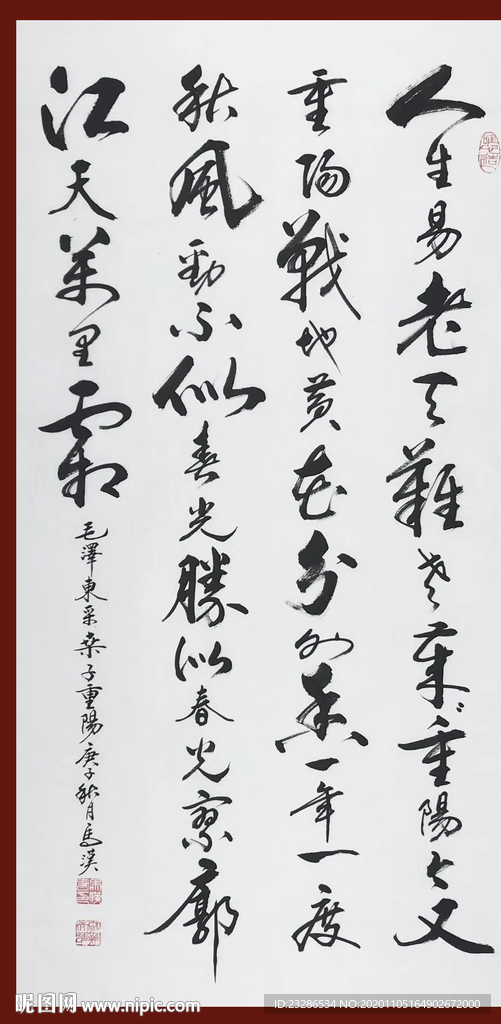 人生易老天難老歲〻重陽今又
重陽戰地黃花分外香一年一度
秋風勁不似春光勝似春光寥廓
江天萬里霜
毛澤東采桑子重陽庚子秋月馬
昵图网 www.nipic.com
ID:23286534 NO:20201105164902672000